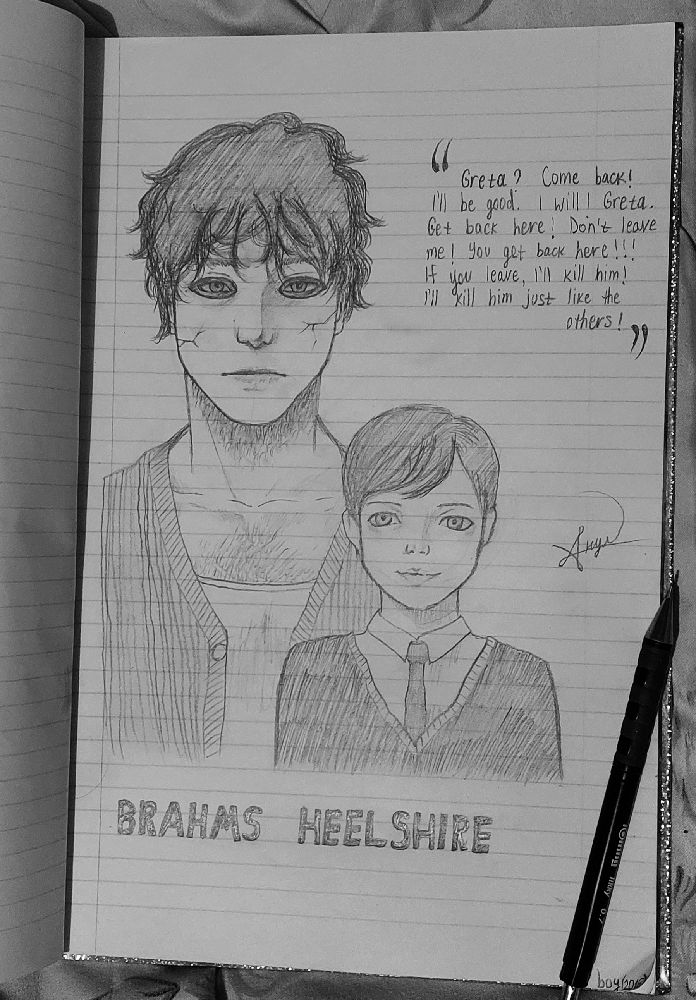 “
Greta? Come back!
I'll be good. I will! Greta.
Get back here! Don't leave
me! You get back here!!!
If you leave, I'll kill him!
I'll kill him just like the
others!
”
BRAHMS HEELSHIRE
0.7